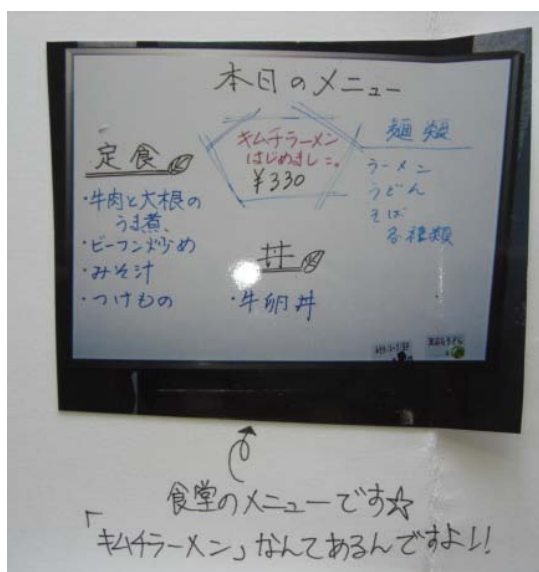 本日のメニュー
定食
・牛肉と大根の
うま煮、
・ビーフン炒め
・みそ汁
・つけもの
キムチラーメン
はじめました。
¥330
丼
・牛卵丼
麺類
ラーメン
うどん
そば
各種類
食堂のメニューです☆
「キムチラーメン」なんてあるんですよ!!